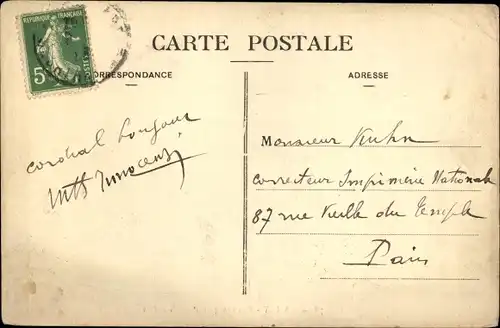 RÉPUBLIQUE FRANÇAISE
5
CARTE POSTALE
CORRESPONDANCE
ADRESSE
cordial bonjour
Innocenti
Monsieur Kuhn
correcteur Imprimerie Nationale
87 rue Vieille du Temple
Paris